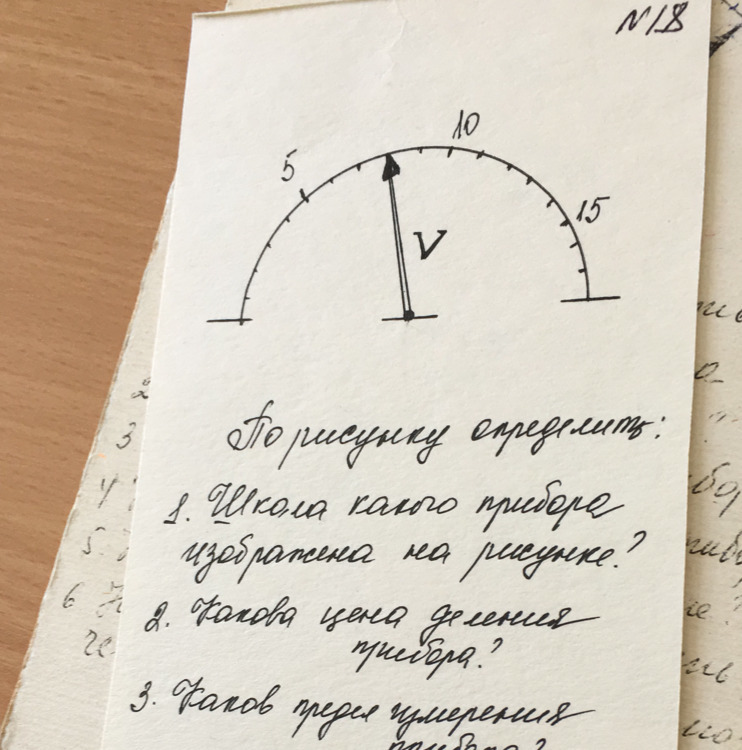 №18
5
10
15
V
По рисунку определить:
1. Шкала какого прибора
изображена на рисунке?
2. Какова цена деления
прибора?
3. Каков предел измерения
прибора?
2
3
4
5.
6